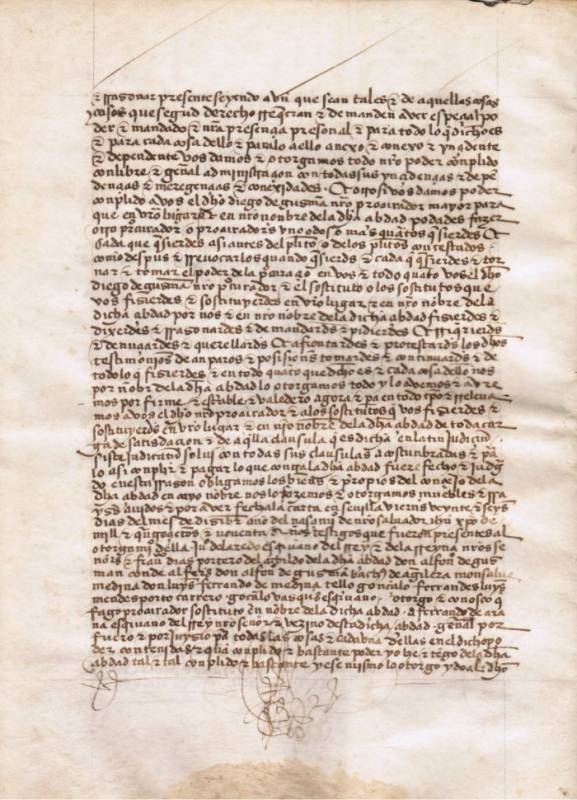 & rrazonar presente seyendo avn que sean tales & de aquellas cosas
y casos que segud derecho rrequieran & demanden aver espeçial po
der & mandado & nra presençia presonal & para todo lo q dicho es
& para cada cosa dello & para lo a ello anexo & conexo & ynçidente
& dependente vos damos & otorgamos todo nro poder conplido
con libre & general administraçion con todas sus ynçidençias & depen
dençias & mergençias & conexidades. Et otrosi vos damos poder
conplido a vos el dho diego de gusman nro procurador mayor para
que en vro lugar & en nro nonbre de la dha abdad podades fazer
otro procurador o procuradores vno o dos o mas quantos qsierdes &
cada que qsierdes asi antes del plito o de los plitos contestados
como despues & rrevocarlos quando qsierdes & cada q qsierdes & tor
nar & tomar el poder de la procuraçion en vos & todo quanto vos el dho
diego de gusman nro procurador & el sostituto o los sostitutos que
vos fisierdes & sostituyerdes en vro lugar & en nro nonbre de la
dicha abdad por nos & en nro nonbre de la dicha abdad fisierdes &
dixerdes & rrazonardes & demandardes & pidierdes
& denunçiardes & querellardes & afrontardes & protestardes los dhos
testimonios de anparos & posisiones tomardes & continuardes & de
todo lo q fisierdes & en todo quanto que dicho es & cada cosa dello nos
por nonbre de la dha abdad lo otorgamos todo y lo avemos & avre
mos por firme & estable & valedero agora & para en todo tpo & rreleva
mos a vos el dho nro procurador & a los sostitutos q vos fisierdes &
sostituyerdes en vro lugar & en nro nonbre de la dha abdad de toda car
ga de satisdaçion & de aqlla clausula q es dicha en latin judiciun
sisti judicatun solui con todas sus clausulas acostunbradas & pa
lo asi conplir & pagar lo que contra la dha abdad fuere fecho & judg
do en esta rrason obligamos los bienes & propios del conçejo de la
dha abdad en cuyo nonbre nos lo fazemos & otorgamos muebles & rra
yses avidos & por aver fecha la carta en seuilla viernes veynte & seys
dias del mes de año del nasçimi de nro saluador ihu xpo de
mill & quatroçientos & nouenta años testigos que fueron presentes al
otorgami della escriuano del rrey & de la rreyna nros se
nores & françisco dias portero del cabildo de la dha abdad don alfon de gus
man conde alferes don alfon de gusman bachiller de aguilera monsalue
medina don luys ferrando de medina tello gonçalo ferrandes luys
mendes portocarrero gonçalo vasques escriuano. otorgo & conosco q
fago procurador sostituto en nonbre de la dicha abdad a ferrando de ara
na escriuano del rrey nro senor & vezino desta dicha abdad general por
fuero & por juysio para todas las cosas & cada vna dellas en el dicho po
der contenidas & qual conplido & bastante poder yo he & tengo de la dha
abdad tal & tal conplido & bastante y ese mismo lo otorgo y do al dho